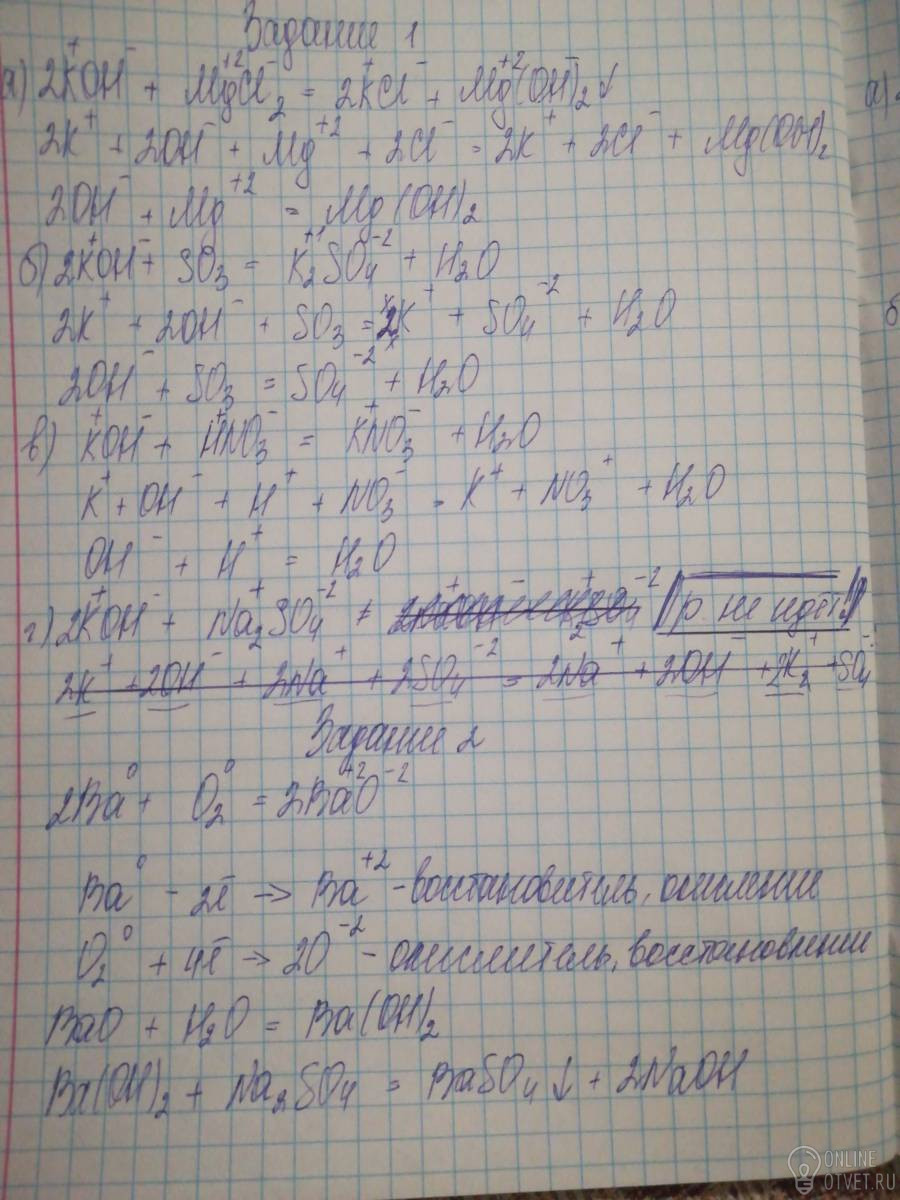 Задание 1
а) 2K⁺OH⁻ + Mg⁺²Cl⁻₂ = 2K⁺Cl⁻ + Mg⁺²(OH)⁻₂↓
2K⁺ + 2OH⁻ + Mg⁺² + 2Cl⁻ = 2K⁺ + 2Cl⁻ + Mg(OH)₂
2OH⁻ + Mg⁺² = Mg(OH)₂
б) 2K⁺OH⁻ + SO₃ = K⁺¹₂SO₄⁻² + H₂O
2K⁺ + 2OH⁻ + SO₃ = 2K⁺ + SO₄⁻² + H₂O
2OH⁻ + SO₃ = SO₄⁻² + H₂O
в) K⁺OH⁻ + H⁺NO₃⁻ = K⁺NO₃⁻ + H₂O
K⁺ + OH⁻ + H⁺ + NO₃⁻ = K⁺ + NO₃⁺ + H₂O
OH⁻ + H⁺ = H₂O
г) 2K⁺OH⁻ + Na⁺₂SO₄⁻² ≠ р. не идёт!
2K⁺ + 2OH⁻ + 2Na⁺ + 2SO₄⁻² = 2Na⁺ + 2OH⁻ + 2K₂⁺ + SO₄⁻
Задание 2
2Ba⁰ + O₂⁰ = 2Ba⁺²O⁻²
Ba⁰ - 2ē → Ba⁺² - восстановитель, окисление
O₂⁰ + 4ē → 2O⁻² - окислитель, восстановление
BaO + H₂O = Ba(OH)₂
Ba(OH)₂ + Na₂SO₄ = BaSO₄↓ + 2NaOH
а)
б
ONLINE
OTVET.RU